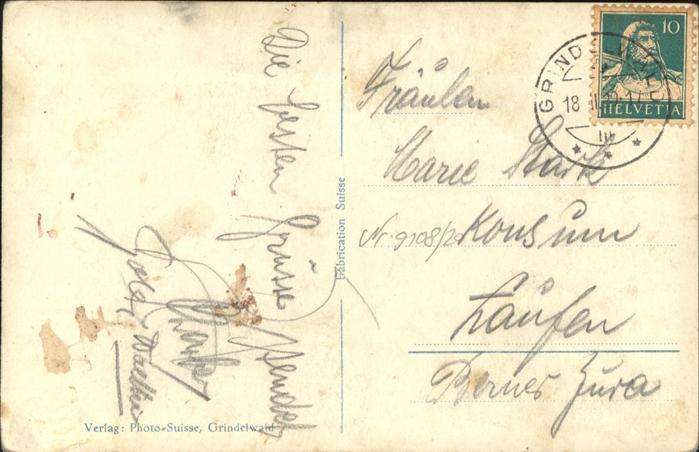 Die besten Grüsse
sendet
Fräulein
Marie Stark
Nr. 9108/2
Konsum
Laufen
Berner Jura
10
HELVETIA
GRINDELWALD
18
III
Fabrication Suisse
Verlag: Photo-Suisse, Grindelwald